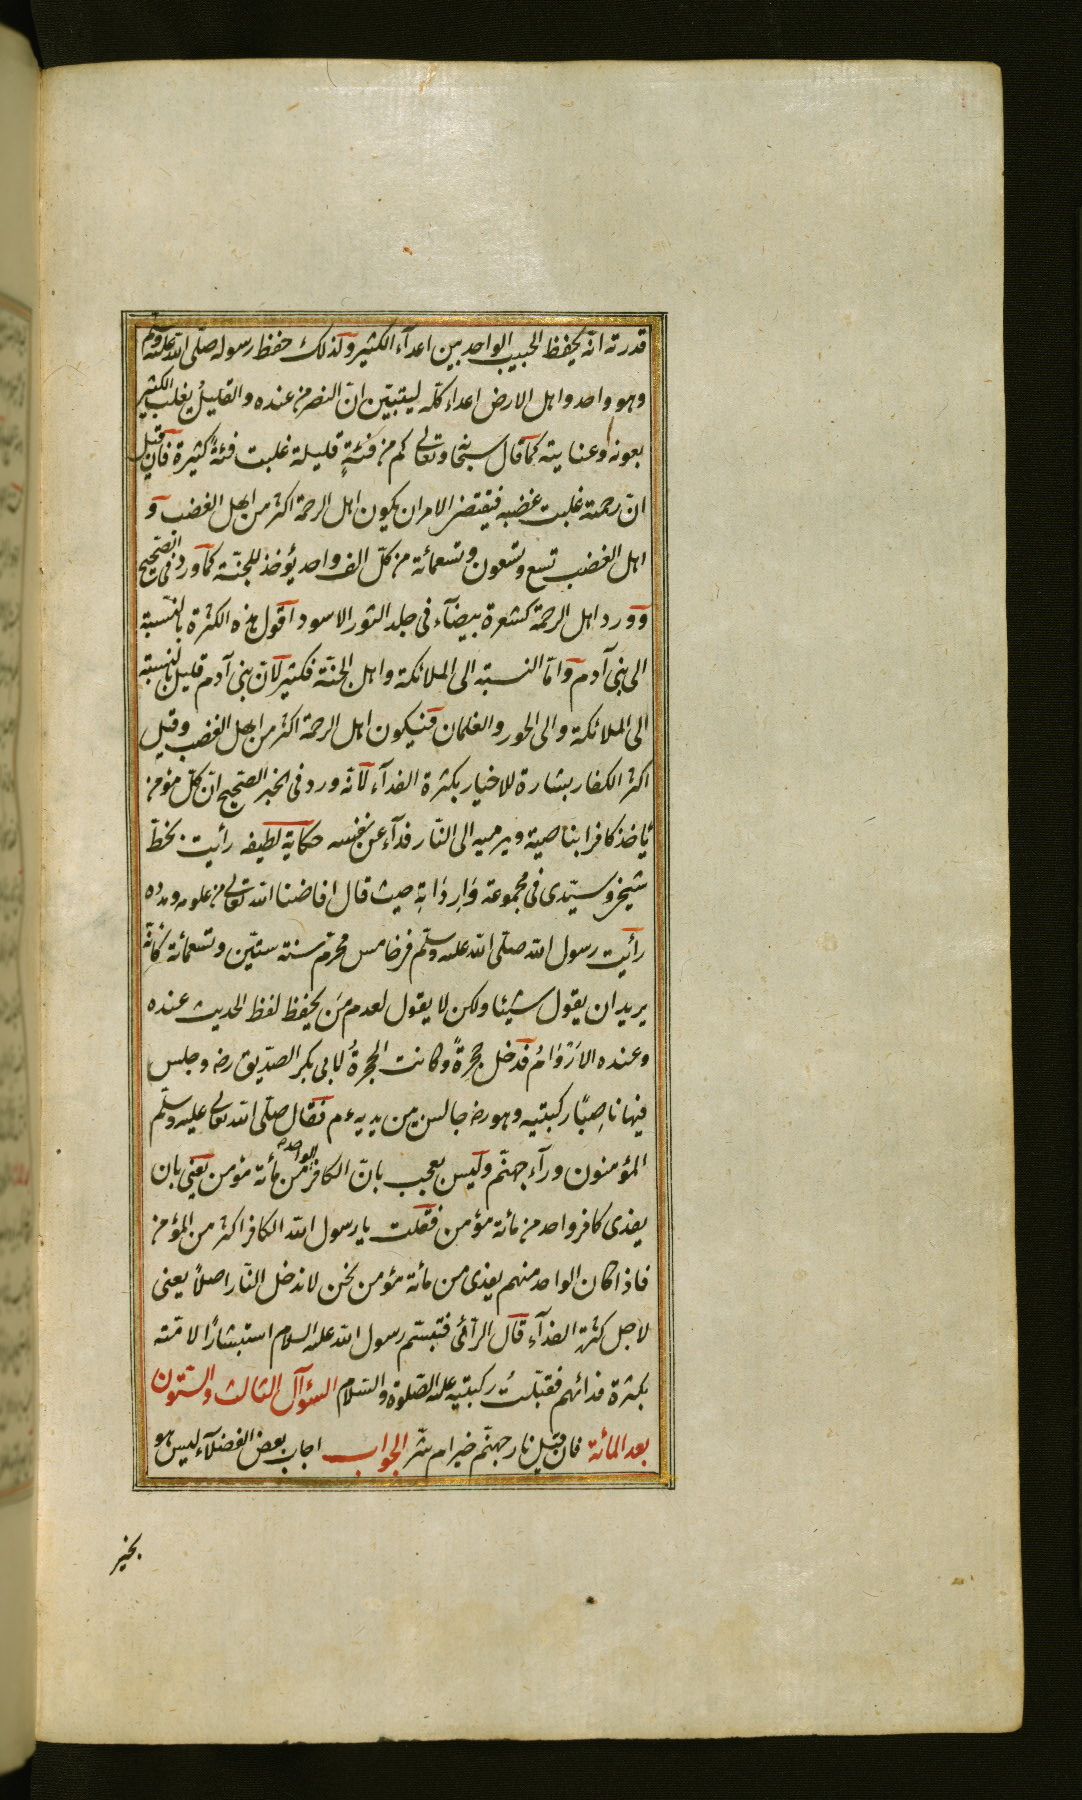 قدرته انه يحفظ الحبيب الواحد بين اعدآء الكثير وكذلك حفظ رسوله صلى الله عليه وسلم
وهو واحد واهل الارض اعداء كله ليتبيّن انّ النصر من عنده والقليلُ يغلب الكثير
بعونه وعنايته كما قال سبحانه وتعالى كم من فئةٍ قليلة غلبت فئةً كثيرة فان قيل
انّ رحمته غلبت غضبه فيقتضى الامر ان يكون اهل الرحمة اكثر من اهل الغضب و
اهل الغضب تسع وتسعون وتسعمائة من كلّ الف واحد يؤخذ للجنّة كما ورد فى الصّحيح
وورد اهل الرحمة كشعرة بيضآء فى جلد الثور الاسود اقول هذه الكثرة بالنّسبة
الى بنى آدم وامّا النسبة الى الملائكة واهل الجنّة فكثير لانّ بنى آدم قليل بالنسبة
الى الملائكة والى الحور والغلمان فيكون اهل الرحمة اكثر من اهل الغضب وقيل
اكثر الكفار بشارة للاخيار بكثرة الفدآء لانّه ورد فى الخبر الصّحيح انّ كلّ مؤمن
يأخذ كافرا بناصيته ويرميه الى النّار فدآء عن نفسه حكاية لطيفه رأيت بخطّ
شيخى وسيّدى فى مجموعة وَارِدَاتِهِ حيث قال افاضنا الله تعالى من علومه ومدده
رأيت رسول الله صلّى الله عليه وسلّم فى خامس محرّم سنة ستّين وتسعمائة كأنّه
يريد ان يقول شيئا ولكن لا يقول لعدم مَن يحفظ لفظ الحديث عنده
وعنده الارْوَامُ فدخل حجرةً وكانت الحجرةُ لابى بكر الصّديق رضه وجلس
فيها ناصِبًا ركبتيه وهو رضه جالس بين يديه عم فقال صلّى الله تعالى عليه وسلّم
المؤمنون ورآء جهنّم وليس بعجب بانّ الكافر الواحد من مأتة مؤمن يعنى بان
يفدى كافر واحد من مأتة مؤمن فقلت يا رسول الله الكافر اكثر من المؤمن
فاذا كان الواحد منهم يفدى من مأتة مؤمن نحن لا ندخل النّار اصلاً يعنى
لاجل كثرة الفدآء قال الرّآئى فتبسّم رسول الله عليه السلام استبشارًا لامّته
بكثرة فدائهم فقبّلتُ ركبتيه عليه الصّلوة والسّلام السؤآل الثالث والستّون
بعد المائة فان قيل نار جهنّم خير ام شرّ الجواب اجاب بعض الفضلآء ليس هو
بخير